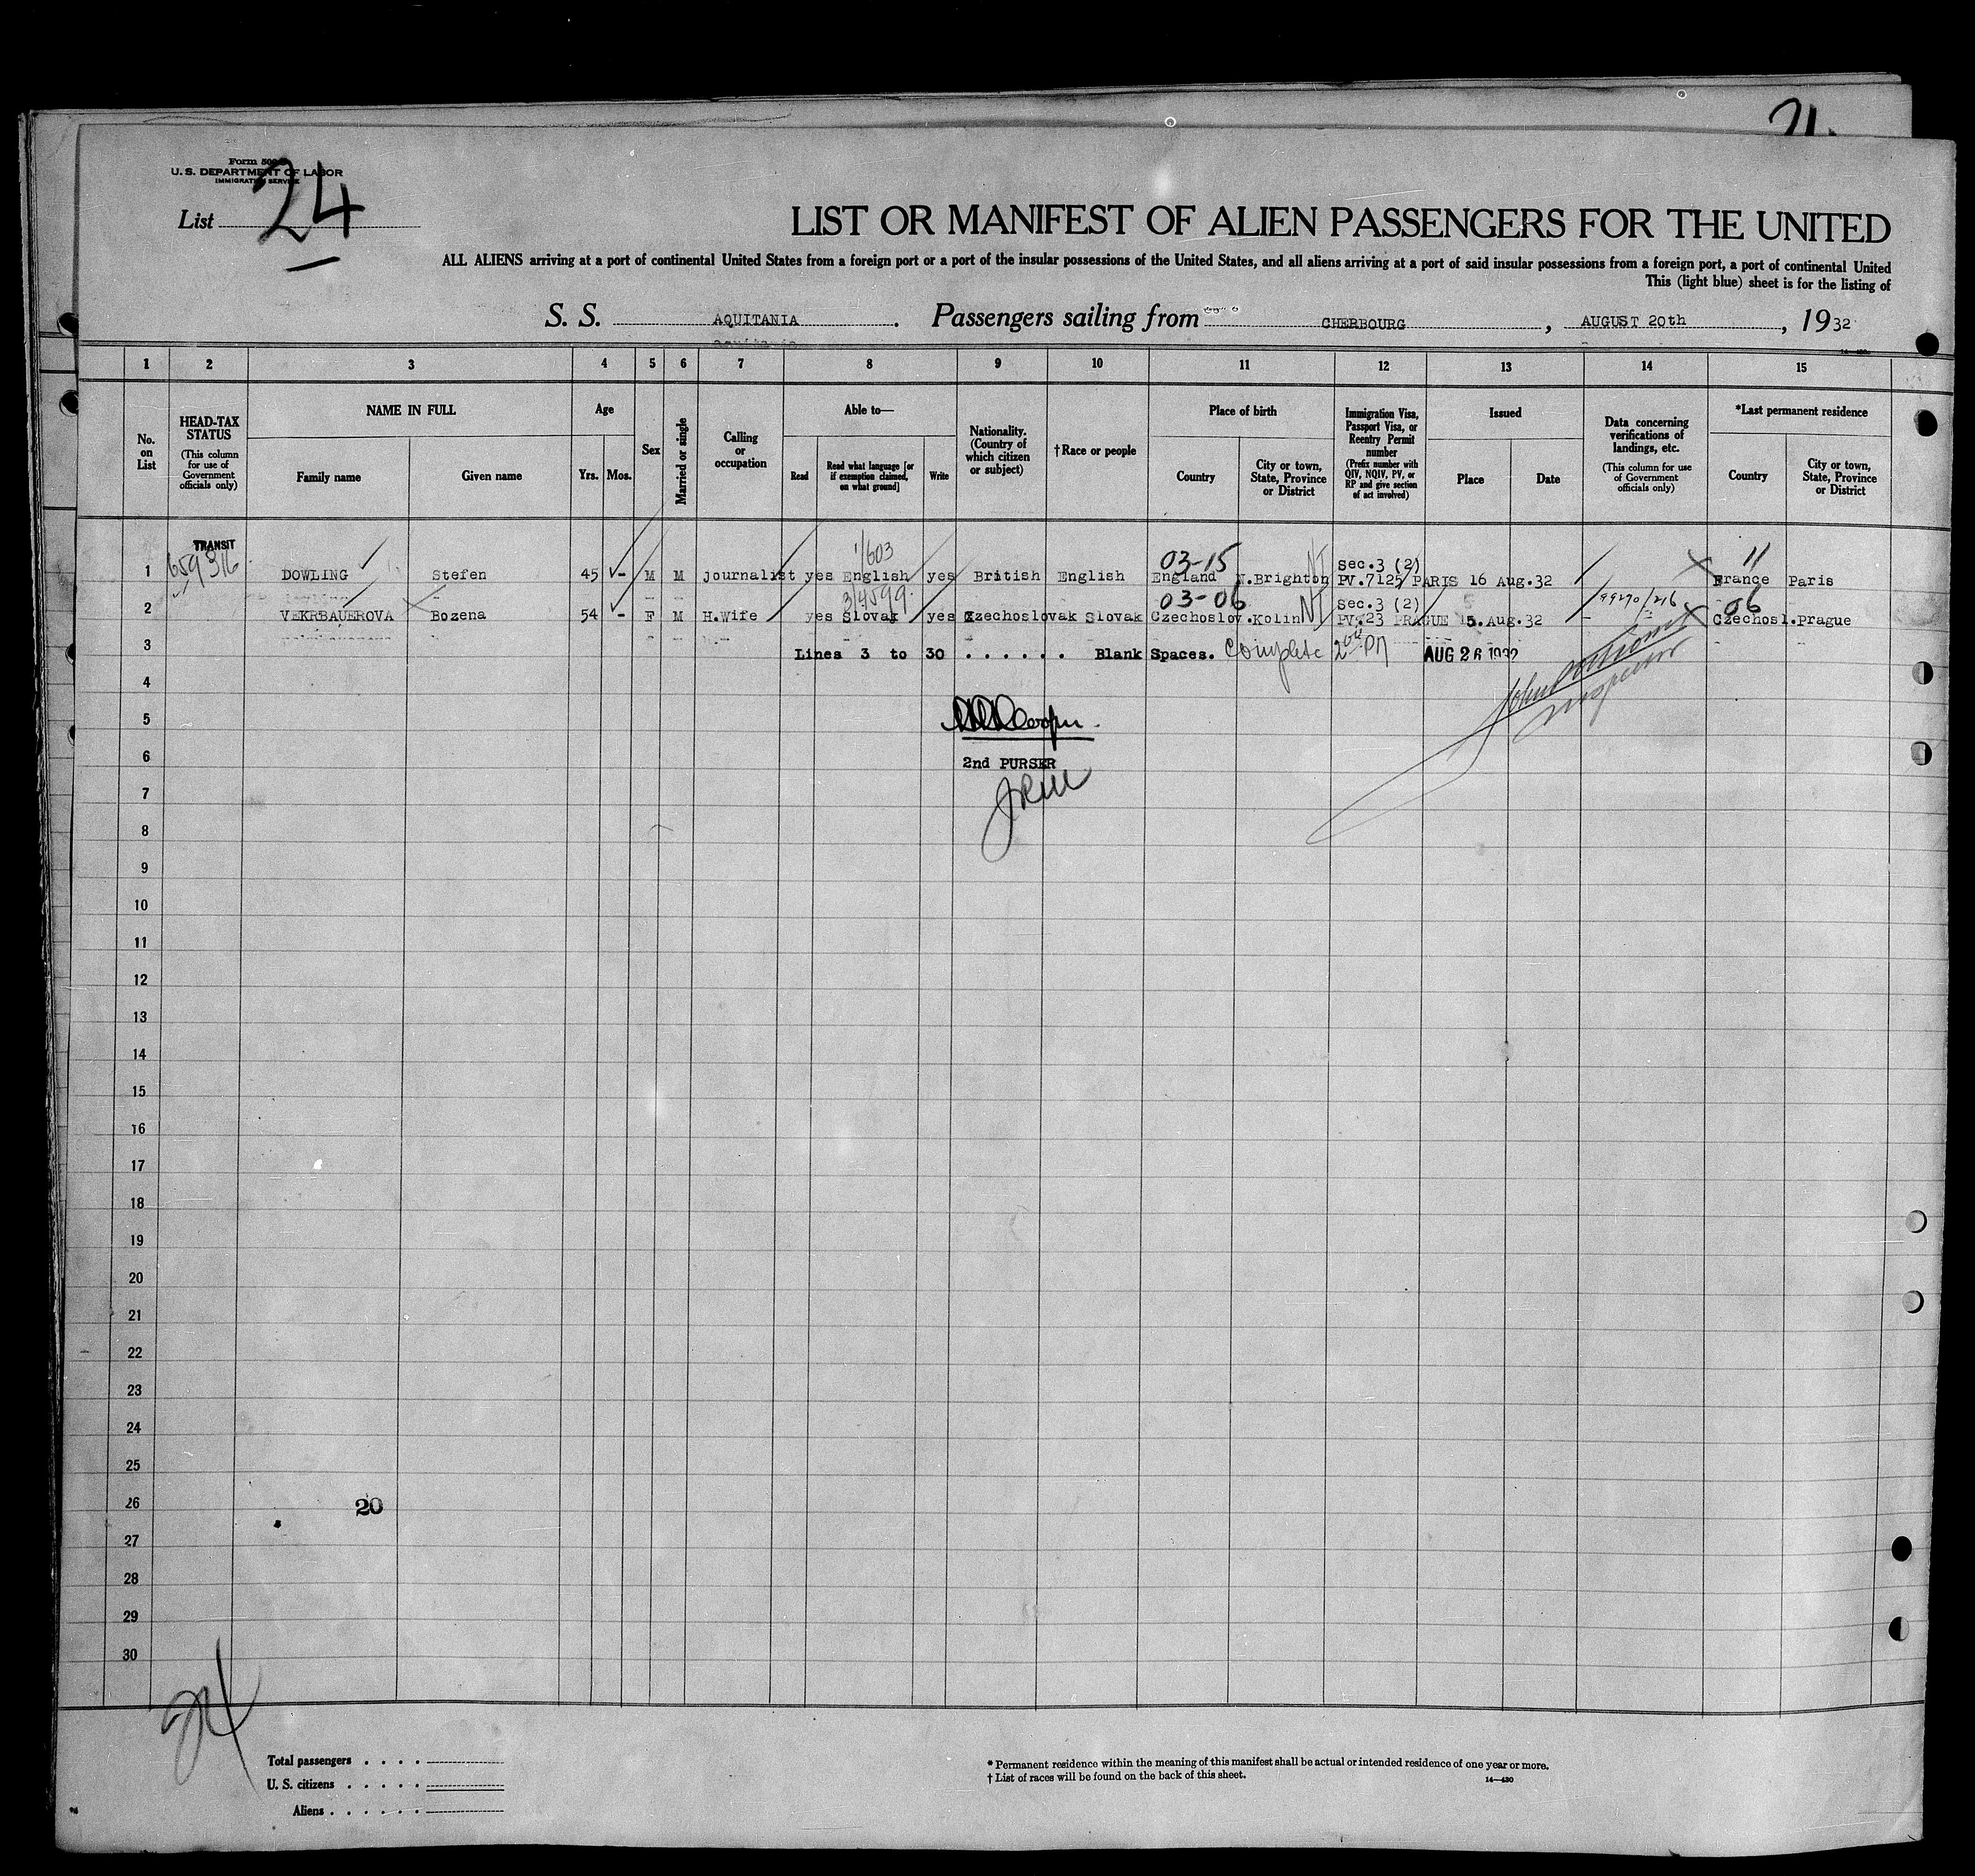 Form 500
U. S. DEPARTMENT OF LABOR
IMMIGRATION SERVICE
List 24
LIST OR MANIFEST OF ALIEN PASSENGERS FOR THE UNITED
ALL ALIENS arriving at a port of continental United States from a foreign port or a port of the insular possessions of the United States, and all aliens arriving at a port of said insular possessions from a foreign port, a port of continental United
This (light blue) sheet is for the listing of
S. S. AQUITANIA. Passengers sailing from CHERBOURG, AUGUST 20th, 1932
1 2 3 4 5 6 7 8 9 10 11 12 13 14 15
No. on List
HEAD-TAX STATUS
(This column for use of Government officials only)
NAME IN FULL
Family name
Given name
Age
Yrs. Mos.
Sex
Married or single
Calling or occupation
Able to—
Read
Read what language [or if exemption claimed, on what ground]
Write
Nationality. (Country of which citizen or subject)
†Race or people
Place of birth
Country
City or town, State, Province or District
Immigration Visa, Passport Visa, or Reentry Permit number
(Prefix number with QIV, NQIV, PV, or RP and give section of act involved)
Issued
Place
Date
Data concerning verifications of landings, etc.
(This column for use of Government officials only)
*Last permanent residence
Country
City or town, State, Province or District
TRANSIT 1/603 03-15 NT Sec.3 (2) 11
1 659316 DOWLING Stefen 45 - M M journalist yes English yes British English England N.Brighton PV.7125 PARIS 16 Aug.32 France Paris
3/4599 03-06 NT Sec.3 (2) 99290/216 06
2 VEKRBAUEROVA Bozena 54 - F M H.Wife yes Slovak yes Czechoslovak Slovak Czechoslov.Kolin PV.23 PRAGUE 15.Aug.32 - Czechosl.Prague
3 Lines 3 to 30 . . . . . . Blank Spaces. Complete 2 00 PM AUG 26 1932
Inspector
4
5
6 2nd PURSER
7 JRM
8
9
10
11
12
13
14
15
16
17
18
19
20
21
22
23
24
25
26 20
27
28
29
30
24
Total passengers . . . .
U. S. citizens . . . . .
Aliens . . . . . .
* Permanent residence within the meaning of this manifest shall be actual or intended residence of one year or more.
† List of races will be found on the back of this sheet.
14—430